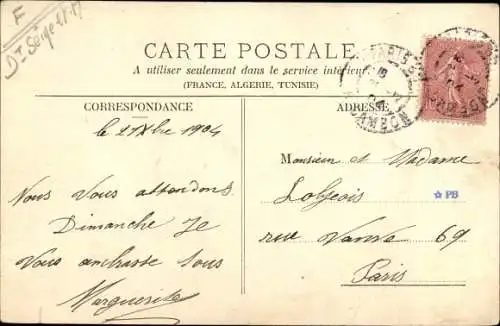 CARTE POSTALE
A utiliser seulement dans le service intérieur
(FRANCE, ALGERIE, TUNISIE)
CORRESPONDANCE
ADRESSE
le 21 Xbre 1904
Nous vous attendons
Dimanche Je
vous embrasse tous
Marguerite
Monsieur et Madame
rue 69
Paris
PB
PARIS
CAMBON